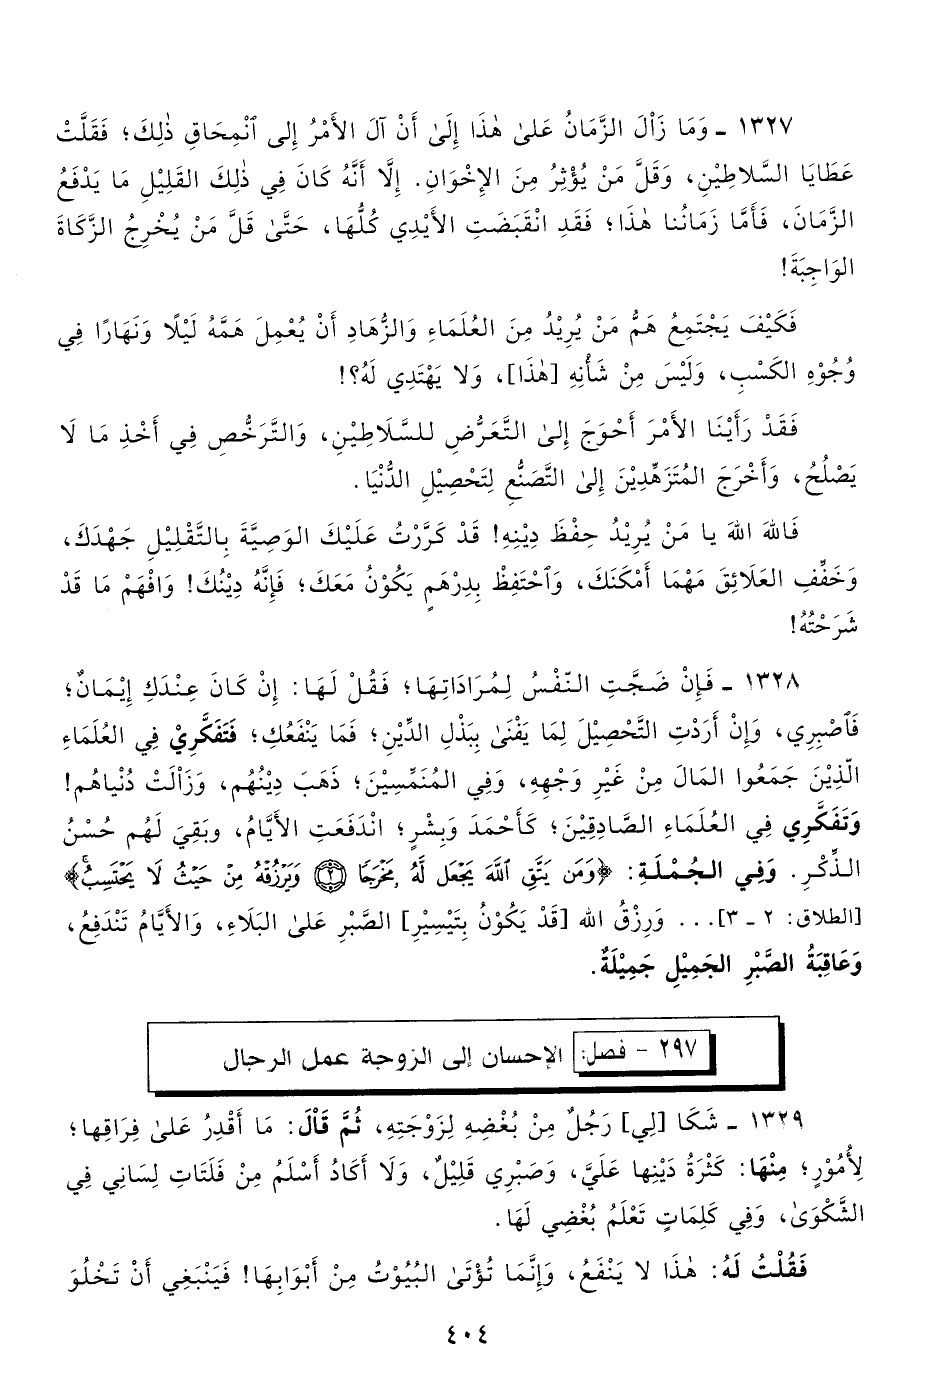 ١٣٢٧ ـ وَمَا زَاْلَ الزَّمَانُ عَلىٰ هٰذَا إِلَىٰ أَنْ آلَ الأَمْرُ إِلى ٱنْمِحَاقِ ذٰلِكَ؛ فَقَلَّتْ
عَطَايَا السَّلاطِيْنِ، وَقَلَّ مَنْ يُؤْثِرُ مِنَ الإِخْوَانِ. إِلَّا أَنَّهُ كَانَ فِي ذٰلِكَ القَلِيْلِ مَا يَدْفَعُ
الزَّمَانَ، فَأَمَّا زَمَانُنا هٰذَا؛ فَقَدِ انْقَبَضَتِ الأَيْدِي كُلُّهَا، حَتَّىٰ قَلَّ مَنْ يُخْرِجُ الزَّكَاةَ
الوَاجِبَةَ!
فَكَيْفَ يَجْتَمِعُ هَمُّ مَنْ يُرِيْدُ مِنَ العُلَمَاءِ وَالزُّهَادِ أَنْ يُعْمِلَ هَمَّهُ لَيْلًا وَنَهَارًا فِي
وُجُوْهِ الكَسْبِ، وَلَيْسَ مِنْ شَأْنِهِ [هٰذَا]، وَلا يَهْتَدِي لَهُ؟!
فَقَدْ رَأَيْنَا الأَمْرَ أَحْوَجَ إِلىٰ التَّعَرُّضِ للسَّلاطِيْنِ، وَالتَّرَخُّصِ فِي أَخْذِ مَا لَا
يَصْلُحُ، وَأَخْرَجَ المُتَزَهِّدِيْنَ إِلىٰ التَّصَنُّعِ لِتَحْصِيْلِ الدُّنْيَا.
فَاللهَ اللهَ يا مَنْ يُرِيْدُ حِفْظَ دِيْنِهِ! قَدْ كَرَّرْتُ عَلَيْكَ الوَصِيَّةَ بِالتَّقْلِيْلِ جَهْدَكَ،
وَخَفِّفِ العَلَائِقَ مَهْمَا أَمْكَنَكَ، وَٱحْتَفِظْ بِدِرْهَمٍ يَكُوْنُ مَعَكَ؛ فَإِنَّهُ دِيْنُكَ! وَافْهَمْ مَا قَدْ
شَرَحْتُهُ!
١٣٢٨ ـ فَإِنْ ضَجَّتِ النَّفْسُ لِمُرَادَاتِهَا؛ فَقُلْ لَهَا: إِنْ كَانَ عِنْدَكِ إِيْمَانٌ؛
فَٱصْبِرِي، وَإِنْ أَرَدْتِ التَّحْصِيْلَ لِمَا يَفْنَىٰ بِبَذْلِ الدِّيْنِ؛ فَمَا يَنْفَعُكِ؛ فَتَفَكَّرِيْ فِي العُلَمَاءِ
الَّذِيْنَ جَمَعُوا المَالَ مِنْ غَيْرِ وَجْهِهِ، وَفِي المُنَمِّسِيْنَ؛ ذَهَبَ دِيْنُهُم، وَزَاْلَتْ دُنْيَاهُم!
وَتَفَكَّرِي فِي العُلَمَاءِ الصَّادِقِيْنَ؛ كَأَحْمَدَ وَبِشْرٍ؛ انْدَفَعَتِ الأَيَّامُ، وبَقِيَ لَهُم حُسْنُ
الذِّكْرِ. وَفِي الجُمْلَةِ: ﴿وَمَن يَتَّقِ ٱللَّهَ يَجْعَل لَّهُۥ مَخْرَجًا ۝٢ وَيَرْزُقْهُ مِنْ حَيْثُ لَا يَحْتَسِبُ﴾
[الطلاق: ٢ ـ ٣]... وَرِزْقُ الله [قَدْ يَكُوْنُ بِتَيْسِيْرِ] الصَّبْرِ عَلىٰ البَلَاءِ، وَالأَيَّامُ تَنْدَفِعُ،
وَعَاقِبَةُ الصَّبْرِ الجَمِيْلِ جَمِيْلَةٌ.
٢٩٧ - فصل: الإحسان إلى الزوجة عمل الرجال
١٣٢٩ ـ شَكَا [لِي] رَجُلٌ مِنْ بُغْضِهِ لِزَوْجَتِهِ، ثُمَّ قَاْلَ: مَا أَقْدِرُ عَلىٰ فِرَاقِها؛
لِأُمُوْرٍ؛ مِنْهَا: كَثْرَةُ دَيْنِها عَلَيَّ، وَصَبْرِي قَلِيْلٌ، وَلَا أَكَادُ أَسْلَمُ مِنْ فَلَتَاتِ لِسَانِي فِي
الشَّكْوَىٰ، وَفِي كَلِمَاتٍ تَعْلَمُ بُغْضِي لَهَا.
فَقُلْتُ لَهُ: هٰذَا لا يَنْفَعُ، وَإِنَّمَا تُؤْتَىٰ البُيُوْتُ مِنْ أَبْوَابِهَا! فَيَنْبَغِي أَنْ تَخْلُوَ
٤٠٤